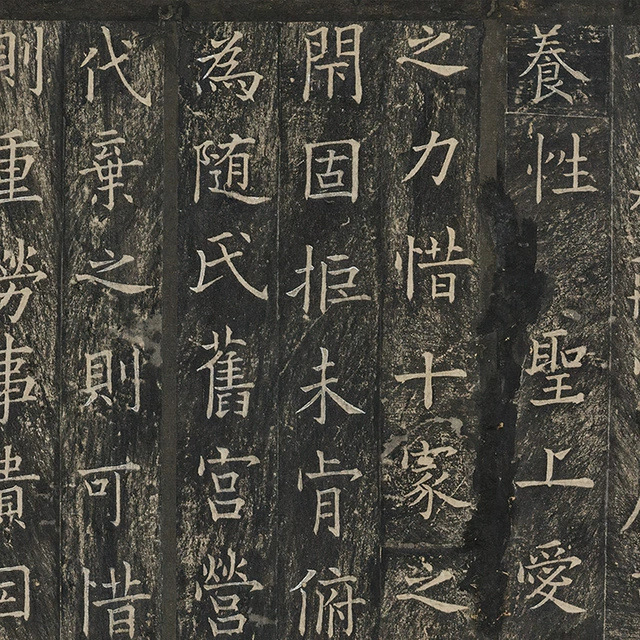 養性 聖上愛
之力惜十家之
閇固拒未肯俯
為隨氏舊宮營
代棄之則可惜
則重勞事貴因